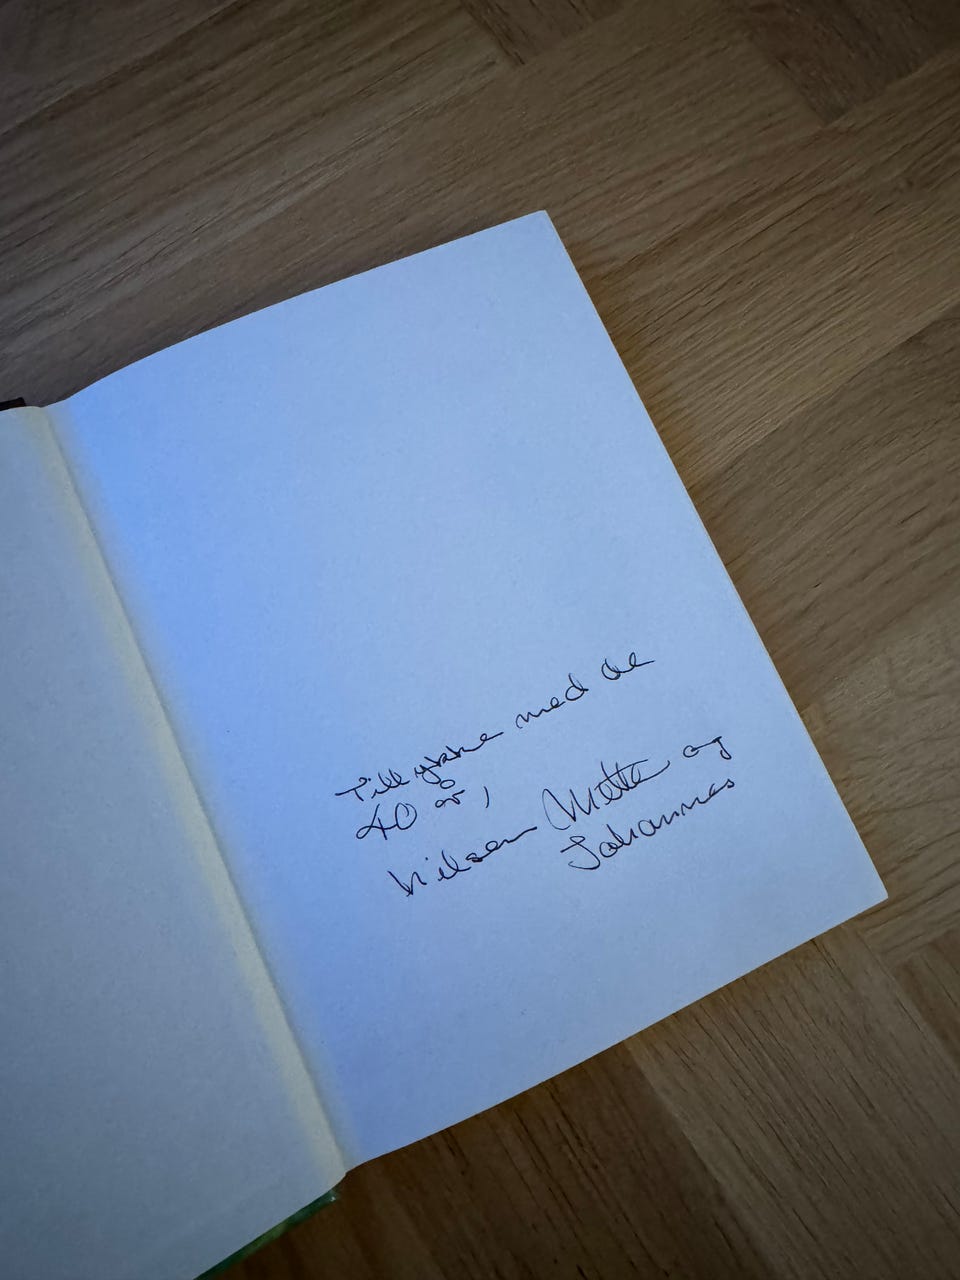 Tillykke med de
40 år,
hilsen Mette og
Johannes